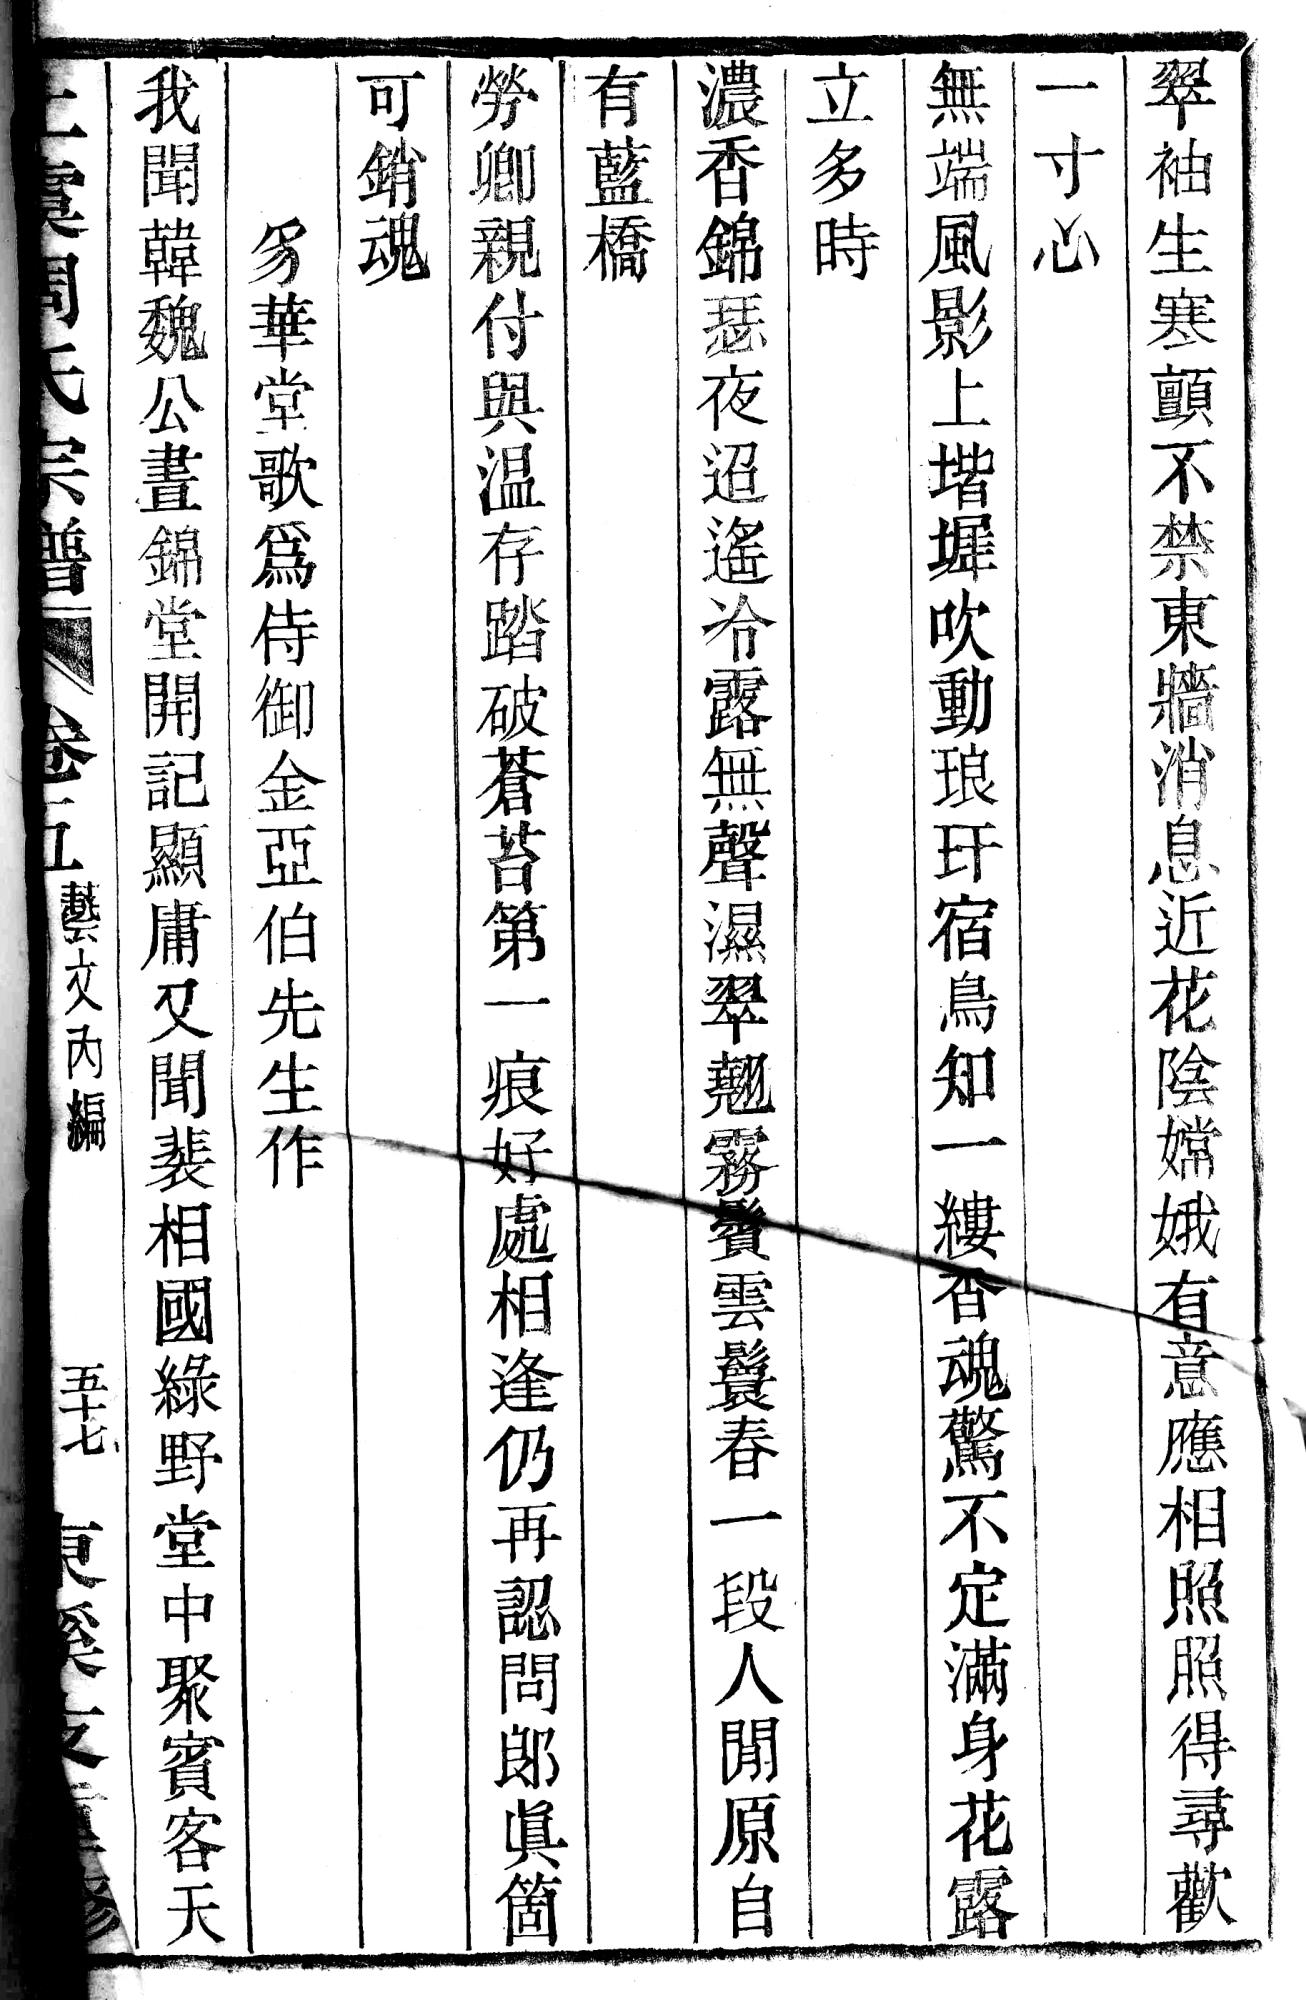 翠袖生寒顫不禁東牆消息近花陰嫦娥有意應相照照得尋歡
一寸心
無端風影上堦墀吹動琅玕宿鳥知一縷香魂驚不定滿身花露
立多時
濃香錦瑟夜迢遙冷露無聲濕翠翹霧鬢雲鬟春一段人閒原自
有藍橋
勞卿親付與温存踏破蒼苔第一痕好處相逢仍再認問郎眞箇
可銷魂
華堂歌爲侍御金亞伯先生作
我聞韓魏公晝錦堂開記顯庸又聞裴相國綠野堂中聚賓客天
上虞周氏宗譜 卷五 藝文內編 五十七 東溪支重修